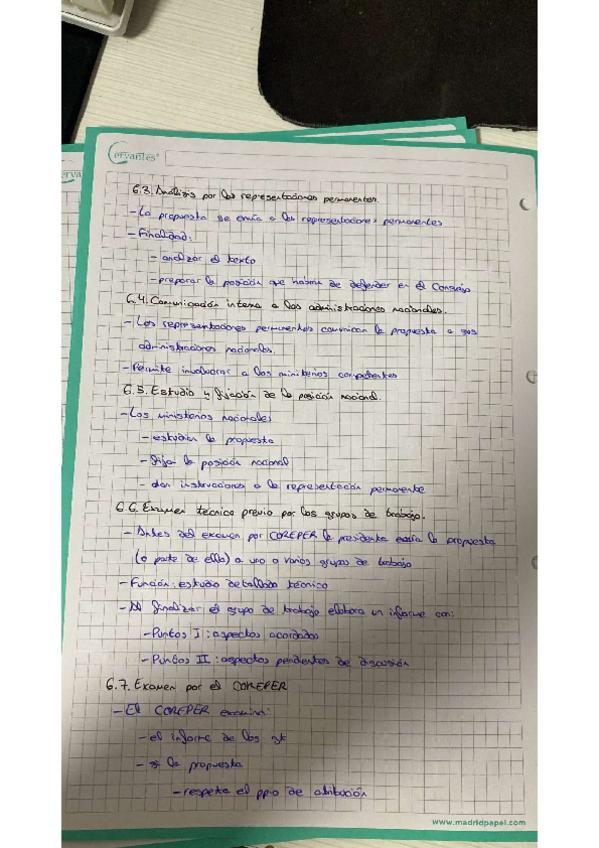 Cervantes
6.3. Análisis por los representadores permanentes.
- La propuesta se envía a los representadores permanentes
- Finalidad:
- analizar el texto
- preparar la posición que habrán de defender en el Consejo
6.4. Comunicación interna a las administraciones nacionales.
- Los representadores permanentes comunican la propuesta a sus
administraciones nacionales.
- Permite involucrar a los ministerios competentes
6.5. Estudio y fijación de la posición nacional.
- Los ministerios nacionales
- estudian la propuesta
- fijan la posición nacional
- dan instrucciones a la representación permanente
6.6. Examen técnico previo por los grupos de trabajo.
- Antes del examen por COREPER la presidenta envía la propuesta
(o parte de ella) a uno o varios grupos de trabajo
- Función: estudio detallado técnico
- Al finalizar el grupo de trabajo elabora un informe con:
- Puntos I: aspectos acordados
- Puntos II: aspectos pendientes de discusión
6.7. Examen por el COREPER
- El COREPER examina:
- el informe de los gt
- si la propuesta
- respeta el ppio de atribución
www.madridpapel.com